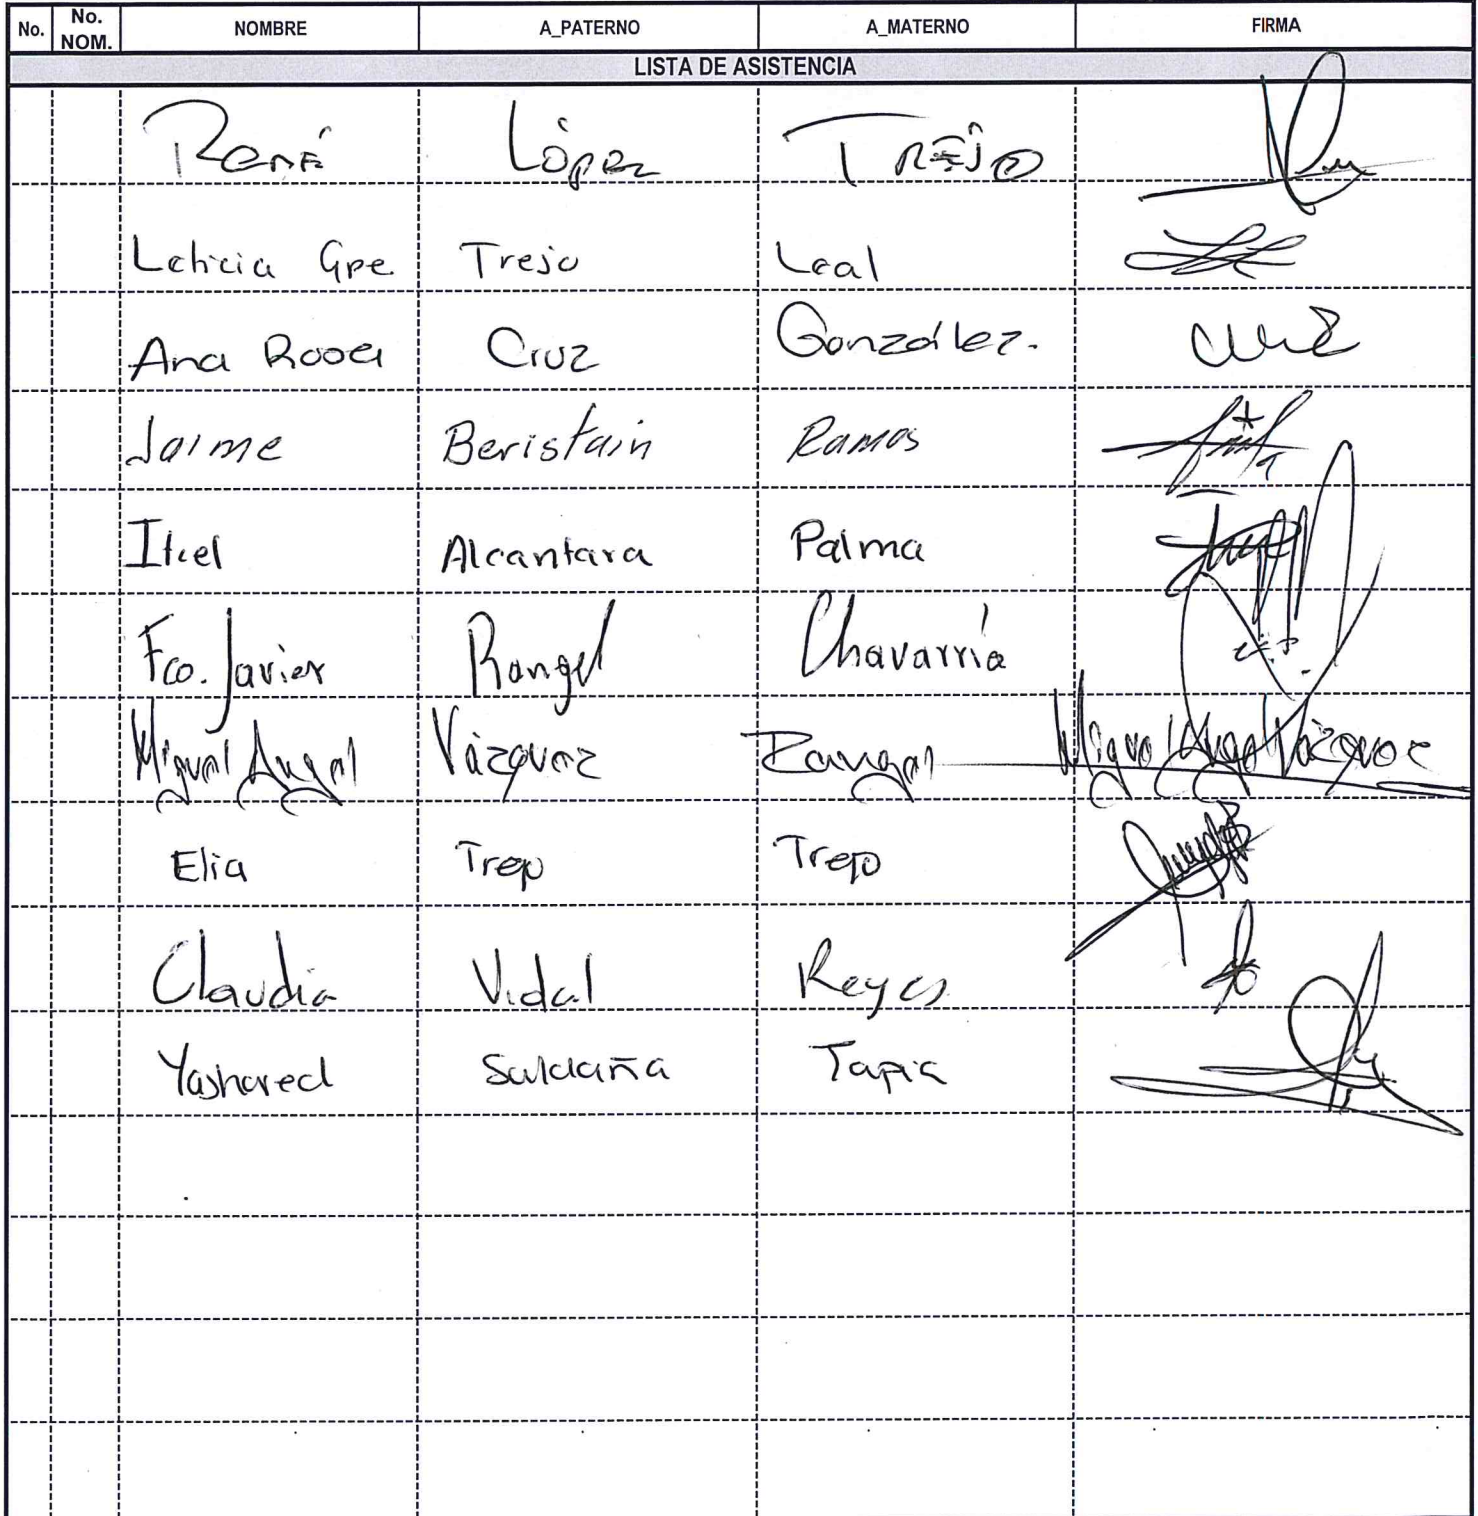 No. No. NOM. NOMBRE A_PATERNO A_MATERNO FIRMA
LISTA DE ASISTENCIA
René López TREJO
Leticia Gpe. Trejo Leal
Ana Rosa Cruz González.
Jaime Beristain Ramos
Itcel Alcantara Palma
Fco. Javier Rangel Chavarría
Miguel Angel Vázquez Rangel Miguel Angel Vázquez
Elia Trejo Trejo
Claudia Vidal Reyes
Yashared Saldaña Tapia